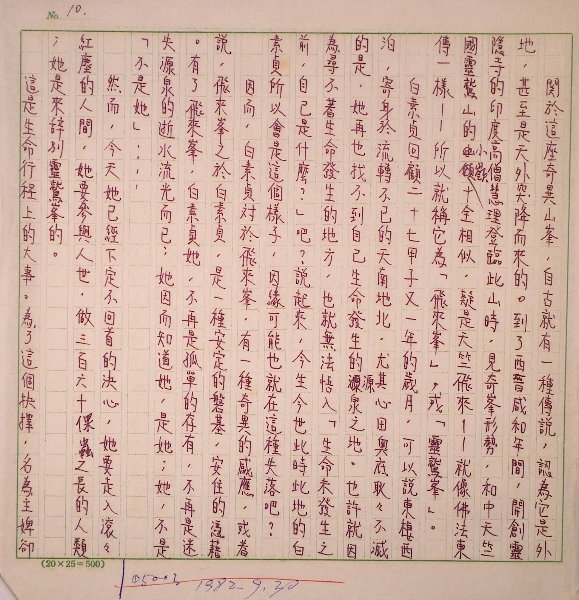 No. 10.
關於這座奇異山峯，自古就有一種傳說，認為它是外
地，甚至是天外突降而來的。到了西晉咸和年間，開創靈
隱寺的印度高僧慧理登臨此山時，見奇峯形勢，和中天竺
國靈鷲山的小嶺十全相似，疑是天竺飛來——就像佛法東
傳一樣——所以就稱它為「飛來峯」，或「靈鷲峯」。
白素貞回顧二十七甲子又一年的歲月，可以說東棲西
泊，寄身於流轉不已的天南地北，尤其心田奧底耿々不滅
的是，她再也找不到自己生命發生的源泉之地。也許就因
為尋不著生命發生的地方，也就無法悟入「生命未發生之
前，自己是什麼？」吧？說起來，今生今世此時此地的白
素貞所以會是這個樣子，因緣可能也就在這種失落吧？
因而，白素貞對於飛來峯，有一種奇異的感應，或者
說，飛來峯之於白素貞，是一種安定的磐基，安住的憑藉
。有了飛來峯，白素貞她，不再是孤單的存有，不再是迷
失源泉的逝水流光而已；她因而知道她，是她；她，不是
「不是她」……
然而，今天她已經下定不回首的決心，她要走入滾々
紅塵的人間，她要參與人世，做三百六十倮蟲之長的人類
；她是來辭別靈鷲峯的。
這是生命行程上的大事。為了這個抉擇，名為主婢卻
(20×25=500)
05003
1982.9.20